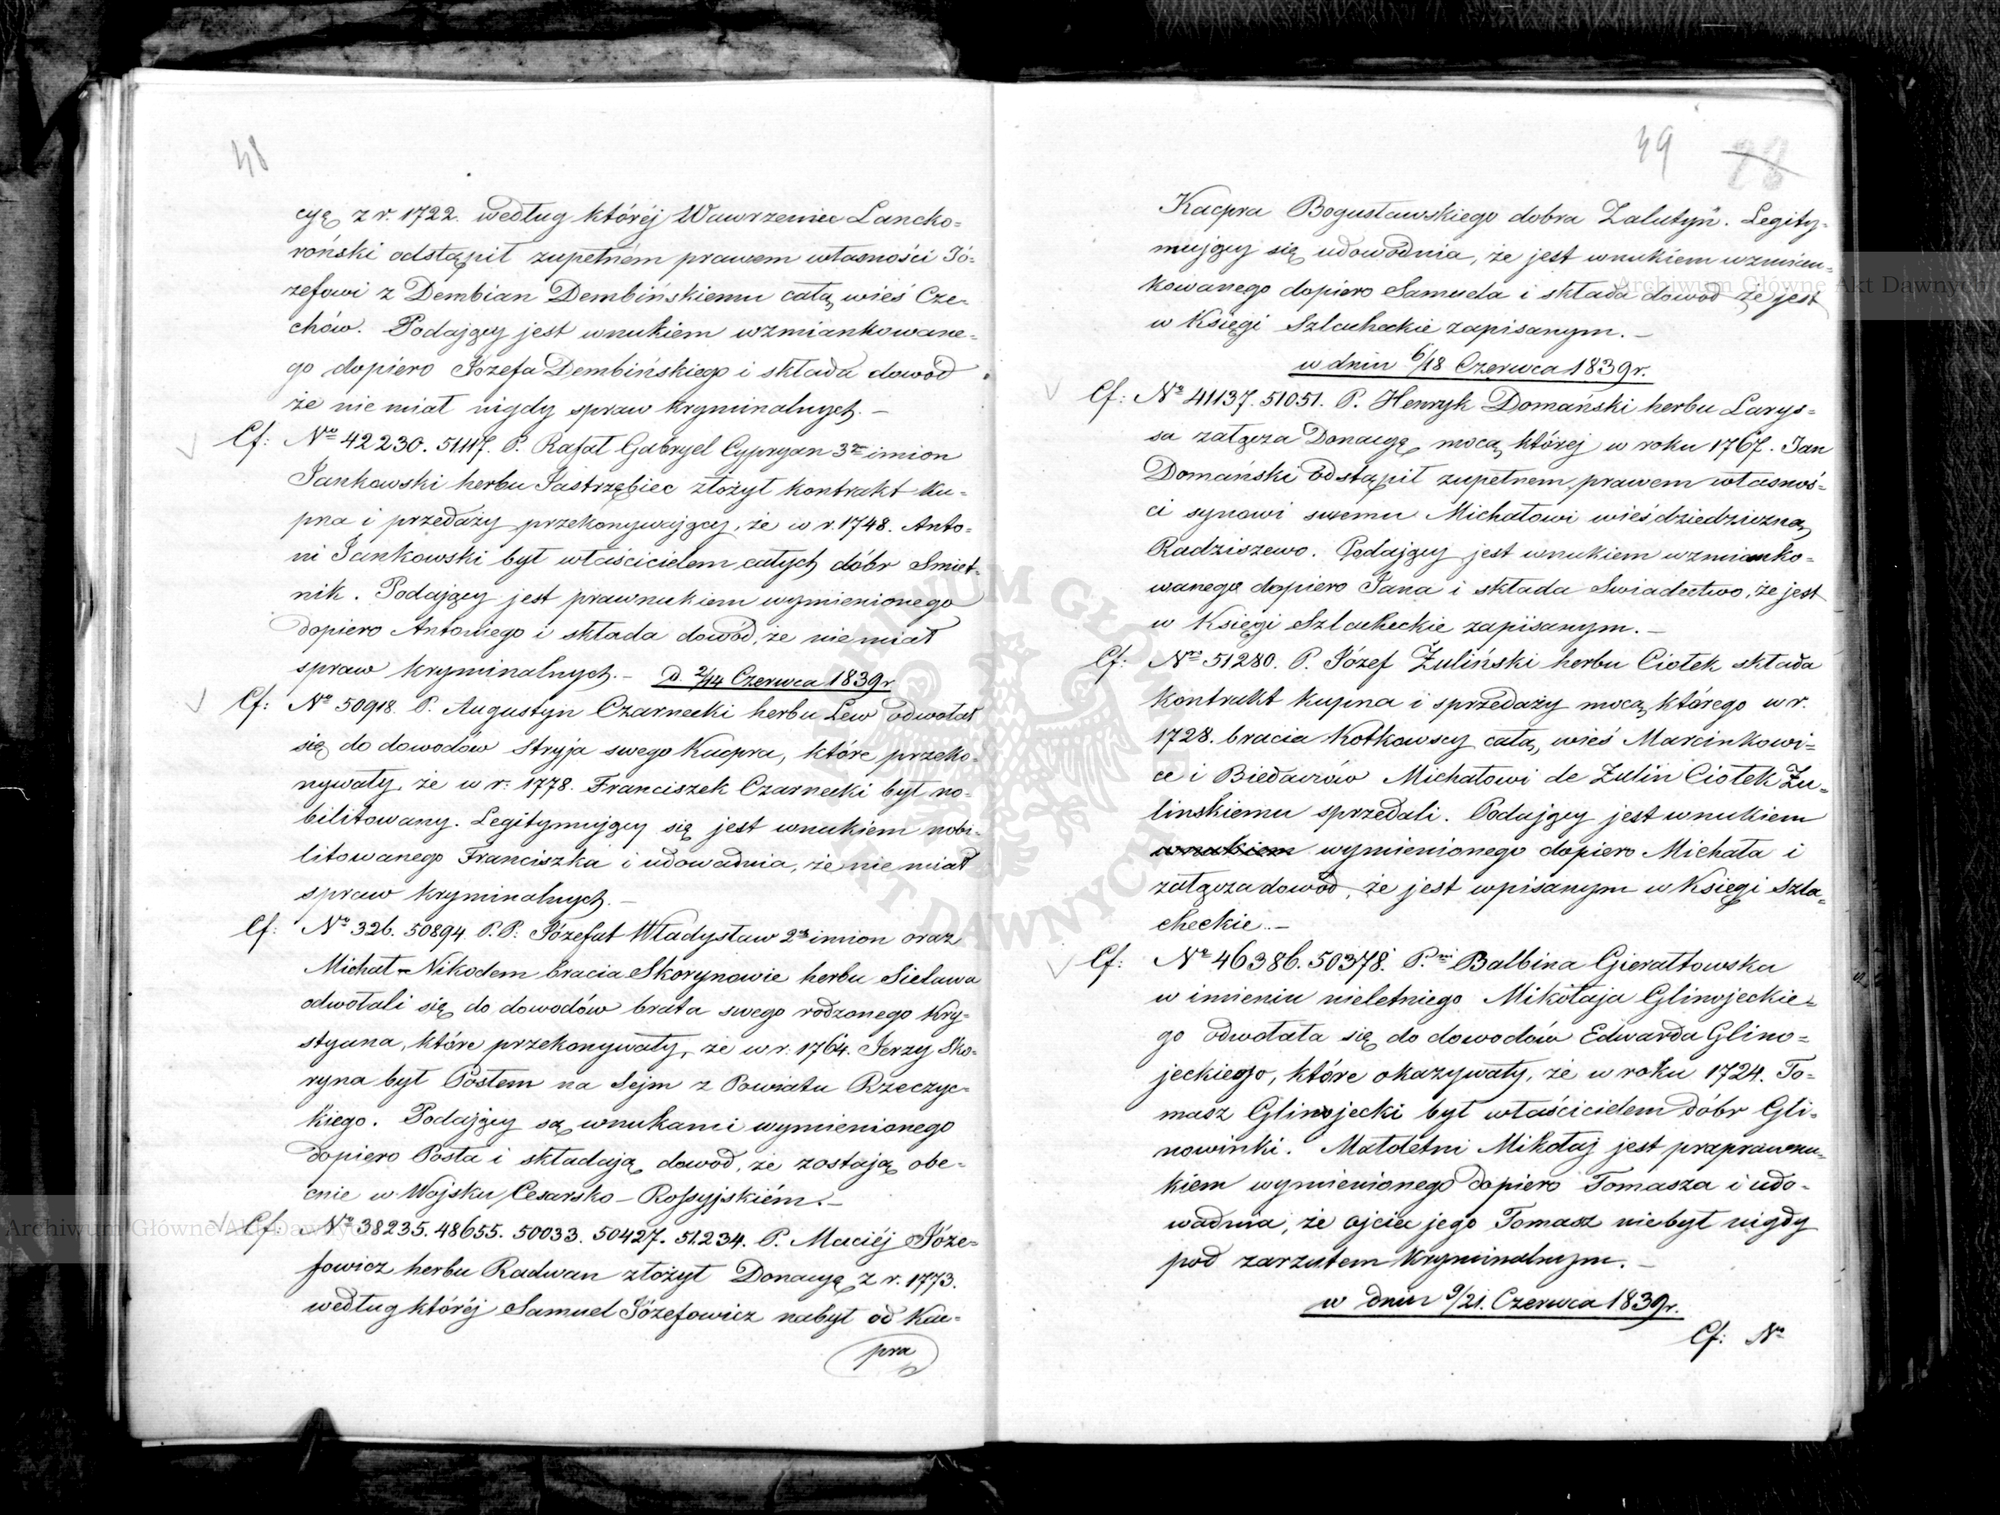 48
cyę z r. 1722. według któréj Wawrzeniec Lancko-
roński odstąpił zupełném prawem własności Jó-
zefowi z Dembian Dembińskiemu całą wieś Cze-
chów. Podający jest wnukiem wzmiankowane-
go dopiero Józefa Dembińskiego i składa dowód
że nie miał nigdy spraw kryminalnych. –
Cf: No 42230. 51117. P. Rafał Gabryel Cypryan 3ch imion
Jankowski herbu Jastrzębiec złożył kontrakt ku-
pna i przedaży przekonywający, że w r. 1748. Anto-
ni Jankowski był właścicielem całych dóbr Smiet-
nik. Podający jest prawnukiem wymienionego
dopiero Antoniego i składa dowód, że nie miał
spraw kryminalnych. – d. 2/14 Czerwca 1839 r.
Cf: No 50918. P. Augustyn Czarnecki herbu Lew odwołał
się do dowodów Stryja swego Kacpra, które przeko-
nywały, że w r: 1778. Franciszek Czarnecki był no-
bilitowany. Legitymujący się jest wnukiem nobi-
litowanego Franciszka i udowadnia, że nie miał
spraw kryminalnych. –
Cf: No 326. 50894. P.P. Józefat Władysław 2ch imion oraz
Michał-Nikodem bracia Skorynowie herbu Sielawa
odwołali się do dowodów brata swego rodzonego Kry-
styana, które przekonywały, że w r: 1764. Jerzy Sko-
ryna był Posłem na Sejm z Powiatu Rzeczyc-
kiego. Podający są wnukami wymienionego
dopiero Posła i składają dowód, że zostają obe-
cnie w Wojsku Cesarsko-Rossyjskiém. –
Cf: No 38235. 48655. 50033. 50427. 51234. P. Maciéj Józe-
fowicz herbu Radwan złożył Donacyę z r. 1773.
według któréj Samuel Józefowicz nabył od Kac-
pra
49 28
Kacpra Bogusławskiego dobra Zalutyń. Legity-
mujący się udowodnia, że jest wnukiem wzmian-
kowanego dopiero Samuela i składa dowód że jest
w Księgi Szlacheckie zapisanym. –
w dniu 6/18 Czerwca 1839 r.
Cf: No 41137. 51051. P. Henryk Domański herbu Larys-
sa załącza Donacyę mocą któréj w roku 1767. Jan
Domański odstąpił zupełnem prawem własnoś-
ci synowi swemu Michałowi wieś dziedziczną
Radziszewo. Podający jest wnukiem wzmianko-
wanego dopiero Jana i składa Swiadectwo, że jest
w Księgi Szlacheckie zapisanym. –
Cf: No 51280. P. Józef Żuliński herbu Ciołek składa
kontrakt kupna i sprzedaży mocą którego w r.
1728. bracia Kotkowscy całą wieś Marcinkowi-
ce i Biedawów Michałowi de Zulin Ciołek Żu-
linskiemu sprzedali. Podający jest wnukiem
wnukiem wymienionego dopiero Michała i
załącza dowód, że jest wpisanym w Księgi Szla-
checkie. –
Cf: No 46386. 50378. P.ni Balbina Gierałtowska
w imieniu nieletniego Mikołaja Glinojeckie-
go odwołała się do dowodów Edwarda Glino-
jeckiego, które okazywały, że w roku 1724. To-
masz Glinojecki był właścicielem dóbr Gli-
nowinki. Małoletni Mikołaj jest praprawnu-
kiem wymienionego dopiero Tomasza i udo-
wadnia, że ojciec jego Tomasz niebył nigdy
pod zarzutem kryminalnym. –
w dniu 9/21. Czerwca 1839 r.
Cf: No
Archiwum Główne Akt Dawnych
Archiwum Główne Akt Dawnych
ARCHIWUM GŁÓWNE AKT DAWNYCH